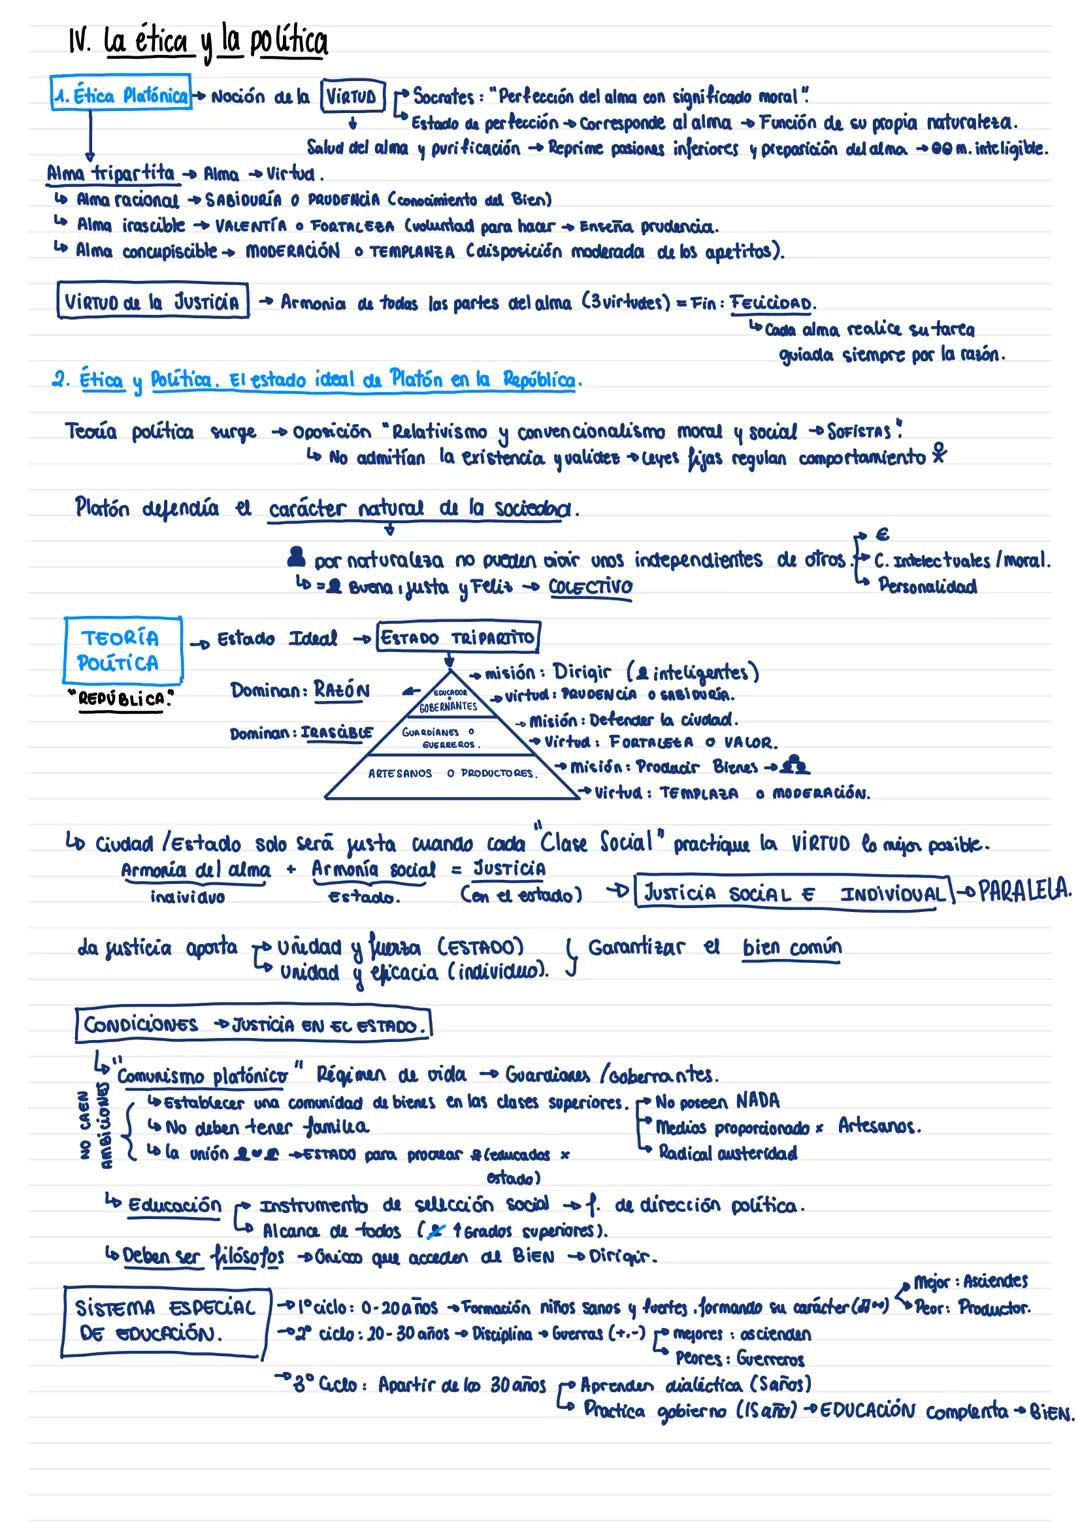 IV. La ética y la política
1. Ética Platónica → Noción de la VIRTUD → Socrates: "Perfección del alma con significado moral".
→ Estado de perfección → Corresponde al alma → Función de su propia naturaleza.
Salud del alma y purificación → Reprime pasiones inferiores y preparación del alma → m. inteligible.
Alma tripartita → Alma → Virtud.
↳ Alma racional → SABIDURÍA O PRUDENCIA (conocimiento del Bien)
↳ Alma irascible → VALENTÍA O FORTALEZA (voluntad para hacer → Enseña prudencia.
↳ Alma concupiscible → MODERACIÓN O TEMPLANZA (disposición moderada de los apetitos).
VIRTUD de la JUSTICIA → Armonia de todas las partes del alma (3 virtudes) = Fin: FELICIDAD.
↳ Cada alma realice su tarea
guiada siempre por la razón.
2. Ética y Política. El estado ideal de Platón en la República.
Teoría política surge → Oposición "Relativismo y convencionalismo moral y social → SOFISTAS".
↳ No admitían la existencia y validez → Leyes fijas regulan comportamiento
Platón defendía el carácter natural de la sociedad.
→ €
por naturaleza no pueden vivir unos independientes de otros. → C. Intelectuales / moral.
↳ = Buena, justa y Feliz → COLECTIVO → Personalidad
TEORÍA POLÍTICA → Estado Ideal → ESTADO TRIPARTITO
"REPÚBLICA".
→ misión: Dirigir ( inteligentes)
Dominan: RAZÓN ← EDUCADOR O GOBERNANTES → virtud: PRUDENCIA O SABIDURÍA.
→ Misión: Defender la ciudad.
Dominan: IRASCIBLE GUARDIANES O GUERREROS. → Virtud: FORTALEZA O VALOR.
→ Misión: Producir Bienes →
ARTESANOS O PRODUCTORES. → Virtud: TEMPLAZA O MODERACIÓN.
↳ Ciudad / Estado solo será justa cuando cada "Clase Social" practique la VIRTUD lo mejor posible.
Armonía del alma + Armonía social = JUSTICIA
individuo Estado. (en el estado) → JUSTICIA SOCIAL E INDIVIDUAL → PARALELA.
La justicia aporta → Unidad y fuerza (ESTADO) } Garantizar el bien común
→ Unidad y eficacia (individuo).
CONDICIONES → JUSTICIA EN EL ESTADO.
↳ "Comunismo platónico" Régimen de vida → Guardianes / Gobernantes.
NO CAEN AMBICIONES
↳ Establecer una comunidad de bienes en las clases superiores. → No poseen NADA
↳ No deben tener familia → Medios proporcionado x Artesanos.
↳ La unión → ESTADO para procrear (educados x → Radical austeridad
estado)
↳ Educación → Instrumento de selección social → f. de dirección política.
→ Alcance de todos ( ↑ Grados superiores).
↳ Deben ser filósofos → Únicos que acceden al BIEN → Dirigir.
→ Mejor: Asciendes
SISTEMA ESPECIAL DE EDUCACIÓN. → 1º ciclo: 0-20 años → Formación niños sanos y fuertes, formando su carácter → Peor: Productor.
→ 2º ciclo: 20-30 años → Disciplina → Guerras (+,-) → mejores: ascienden
→ Peores: Guerreros
→ 3º Ciclo: Apartir de los 30 años → Aprenden dialéctica (5 años)
→ Practica gobierno (15 año) → EDUCACIÓN complenta → BIEN.